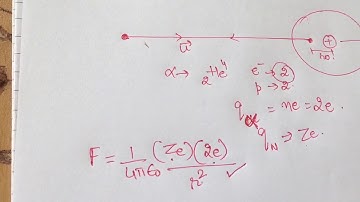 u⃗
+
r₀
α → ₂He⁴ e⁻ → 2
p → 2
qα = ne = 2e.
qN → Ze.
F = 1/4πϵ₀ (Ze)(2e)/r² ✓